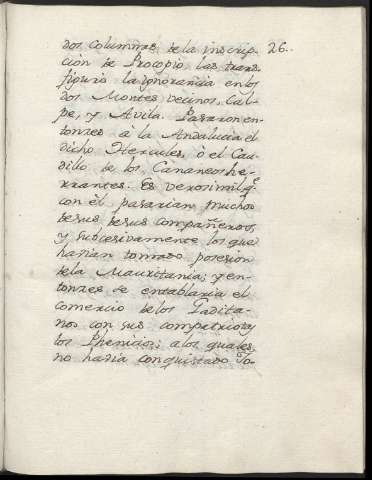 26.
dos columnas de la inscrip-
cion de Procopio, las trans-
figuró la ignorancia en los
dos Montes vecinos, Cal-
pe, y Avila. Pasaron en-
tonzes à la Andalucia el
dicho Hercules, ò el Cau-
dillo de los Cananeos he-
rrantes. Es verosimil q.e
con èl pasarian muchos
de sus de sus compañeros,
y subcesivamente los que
havian tomado posesion
de la Mauritania; y en-
tonzes se entablaria el
comercio de los Gadita-
nos con sus compatriotas
los Phenicios; a los quales
no havia conquistado Jo-